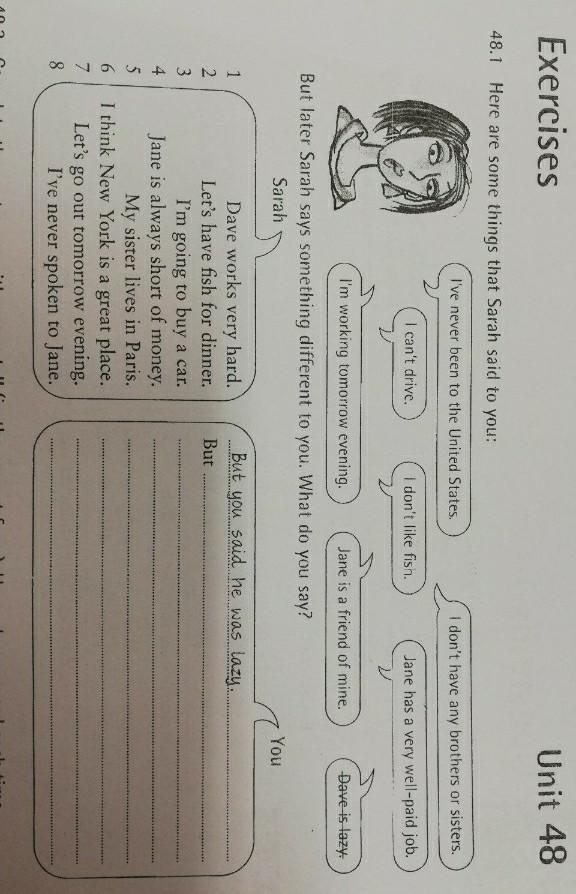 Exercises
Unit 48
48.1 Here are some things that Sarah said to you:
I've never been to the United States.
I don't have any brothers or sisters.
I can't drive.
I don't like fish.
Jane has a very well-paid job.
I'm working tomorrow evening.
Jane is a friend of mine.
Dave is lazy.
But later Sarah says something different to you. What do you say?
Sarah
You
1 Dave works very hard. But you said he was lazy.
2 Let's have fish for dinner. But
3 I'm going to buy a car.
4 Jane is always short of money.
5 My sister lives in Paris.
6 I think New York is a great place.
7 Let's go out tomorrow evening.
8 I've never spoken to Jane.